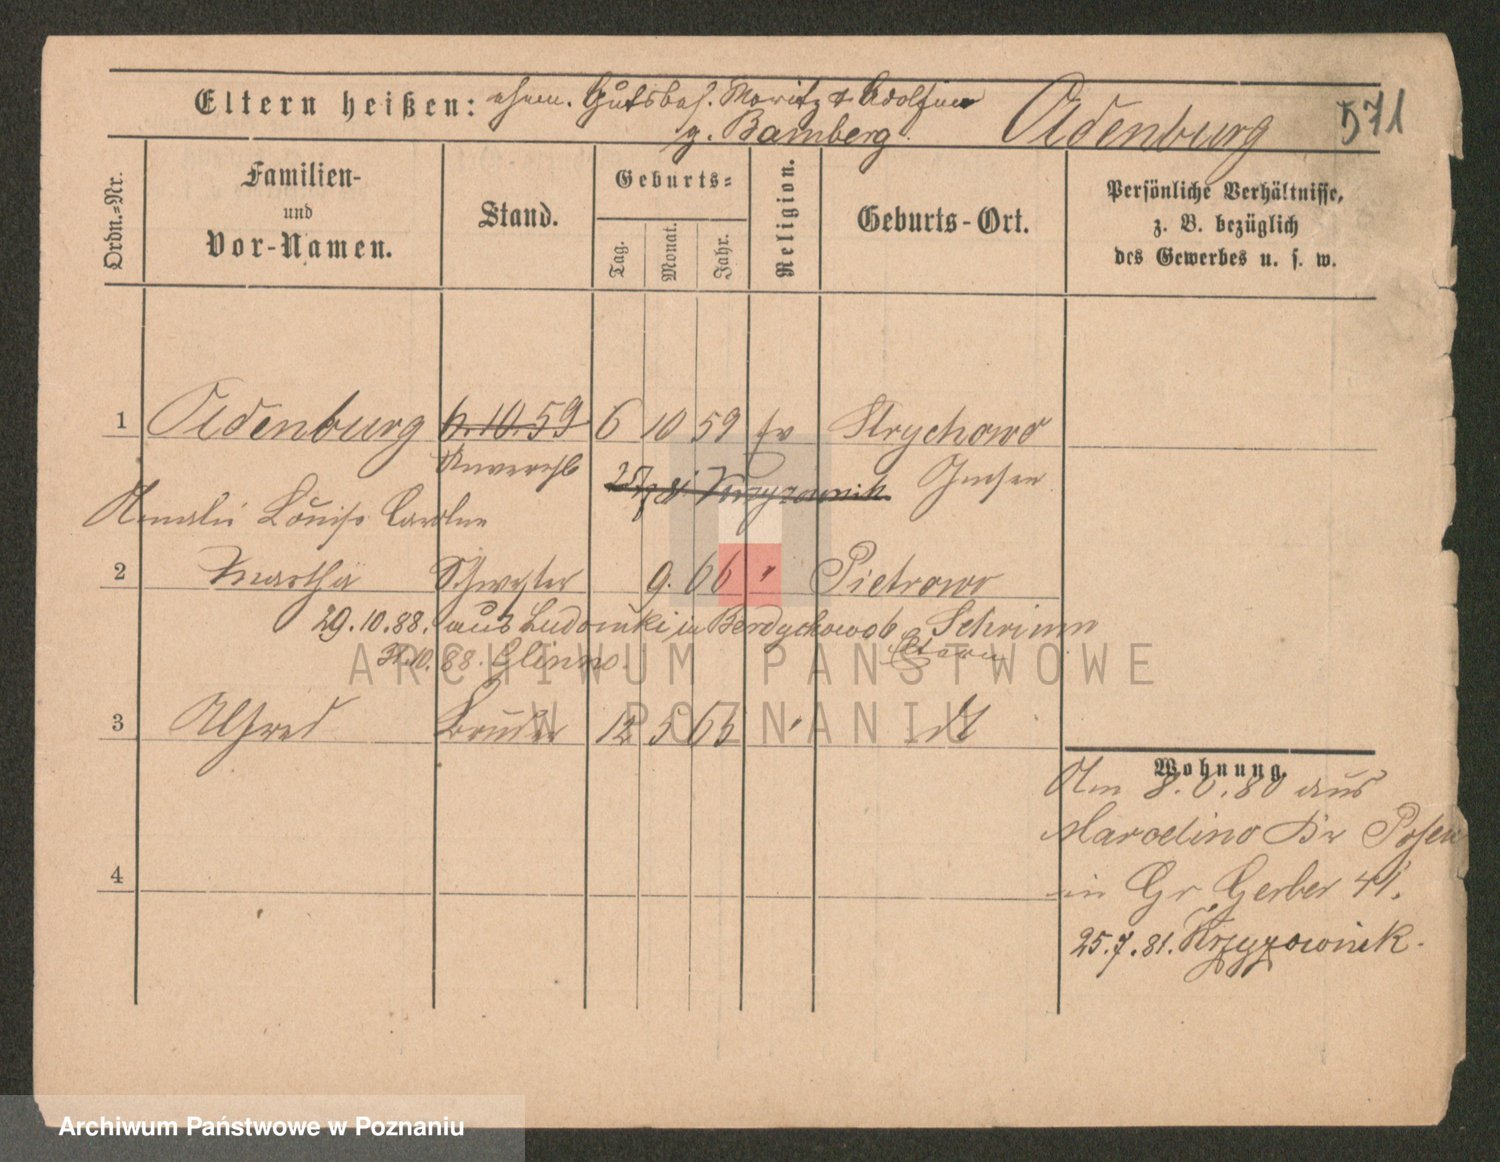 Eltern heißen: ehem. Gutsbes. Moritz & Adolfine
g. Bamberg.
Oldenburg
571
Ordn.=Nr.
Familien-
und
Vor-Namen.
Stand.
Geburts=
Tag.
Monat.
Jahr.
Religion.
Geburts-Ort.
Persönliche Verhältnisse,
z. B. bezüglich
des Gewerbes u. s. w.
1 Oldenburg 6.10.59 6 10 59 ev Strychowo
Unverehl Gnesen
25/7 81 Krzyzownik
Amalie Louise Caroline
2 Martha Schwester 9. 66 " Pietrowo
29.10.88. aus Ludomki in Berdychowo b Schrimm
Eltern
31.10.88. Glinno.
3 Alfred Bruder 12 5 65 " dt
4
Wohnung.
Am 8.6.80 aus
Marcelino Kr Posen
in Gr Gerber 41.
25.7.81. Krzyzownik.
ARCHIWUM PAŃSTWOWE
W POZNANIU
Archiwum Państwowe w Poznaniu